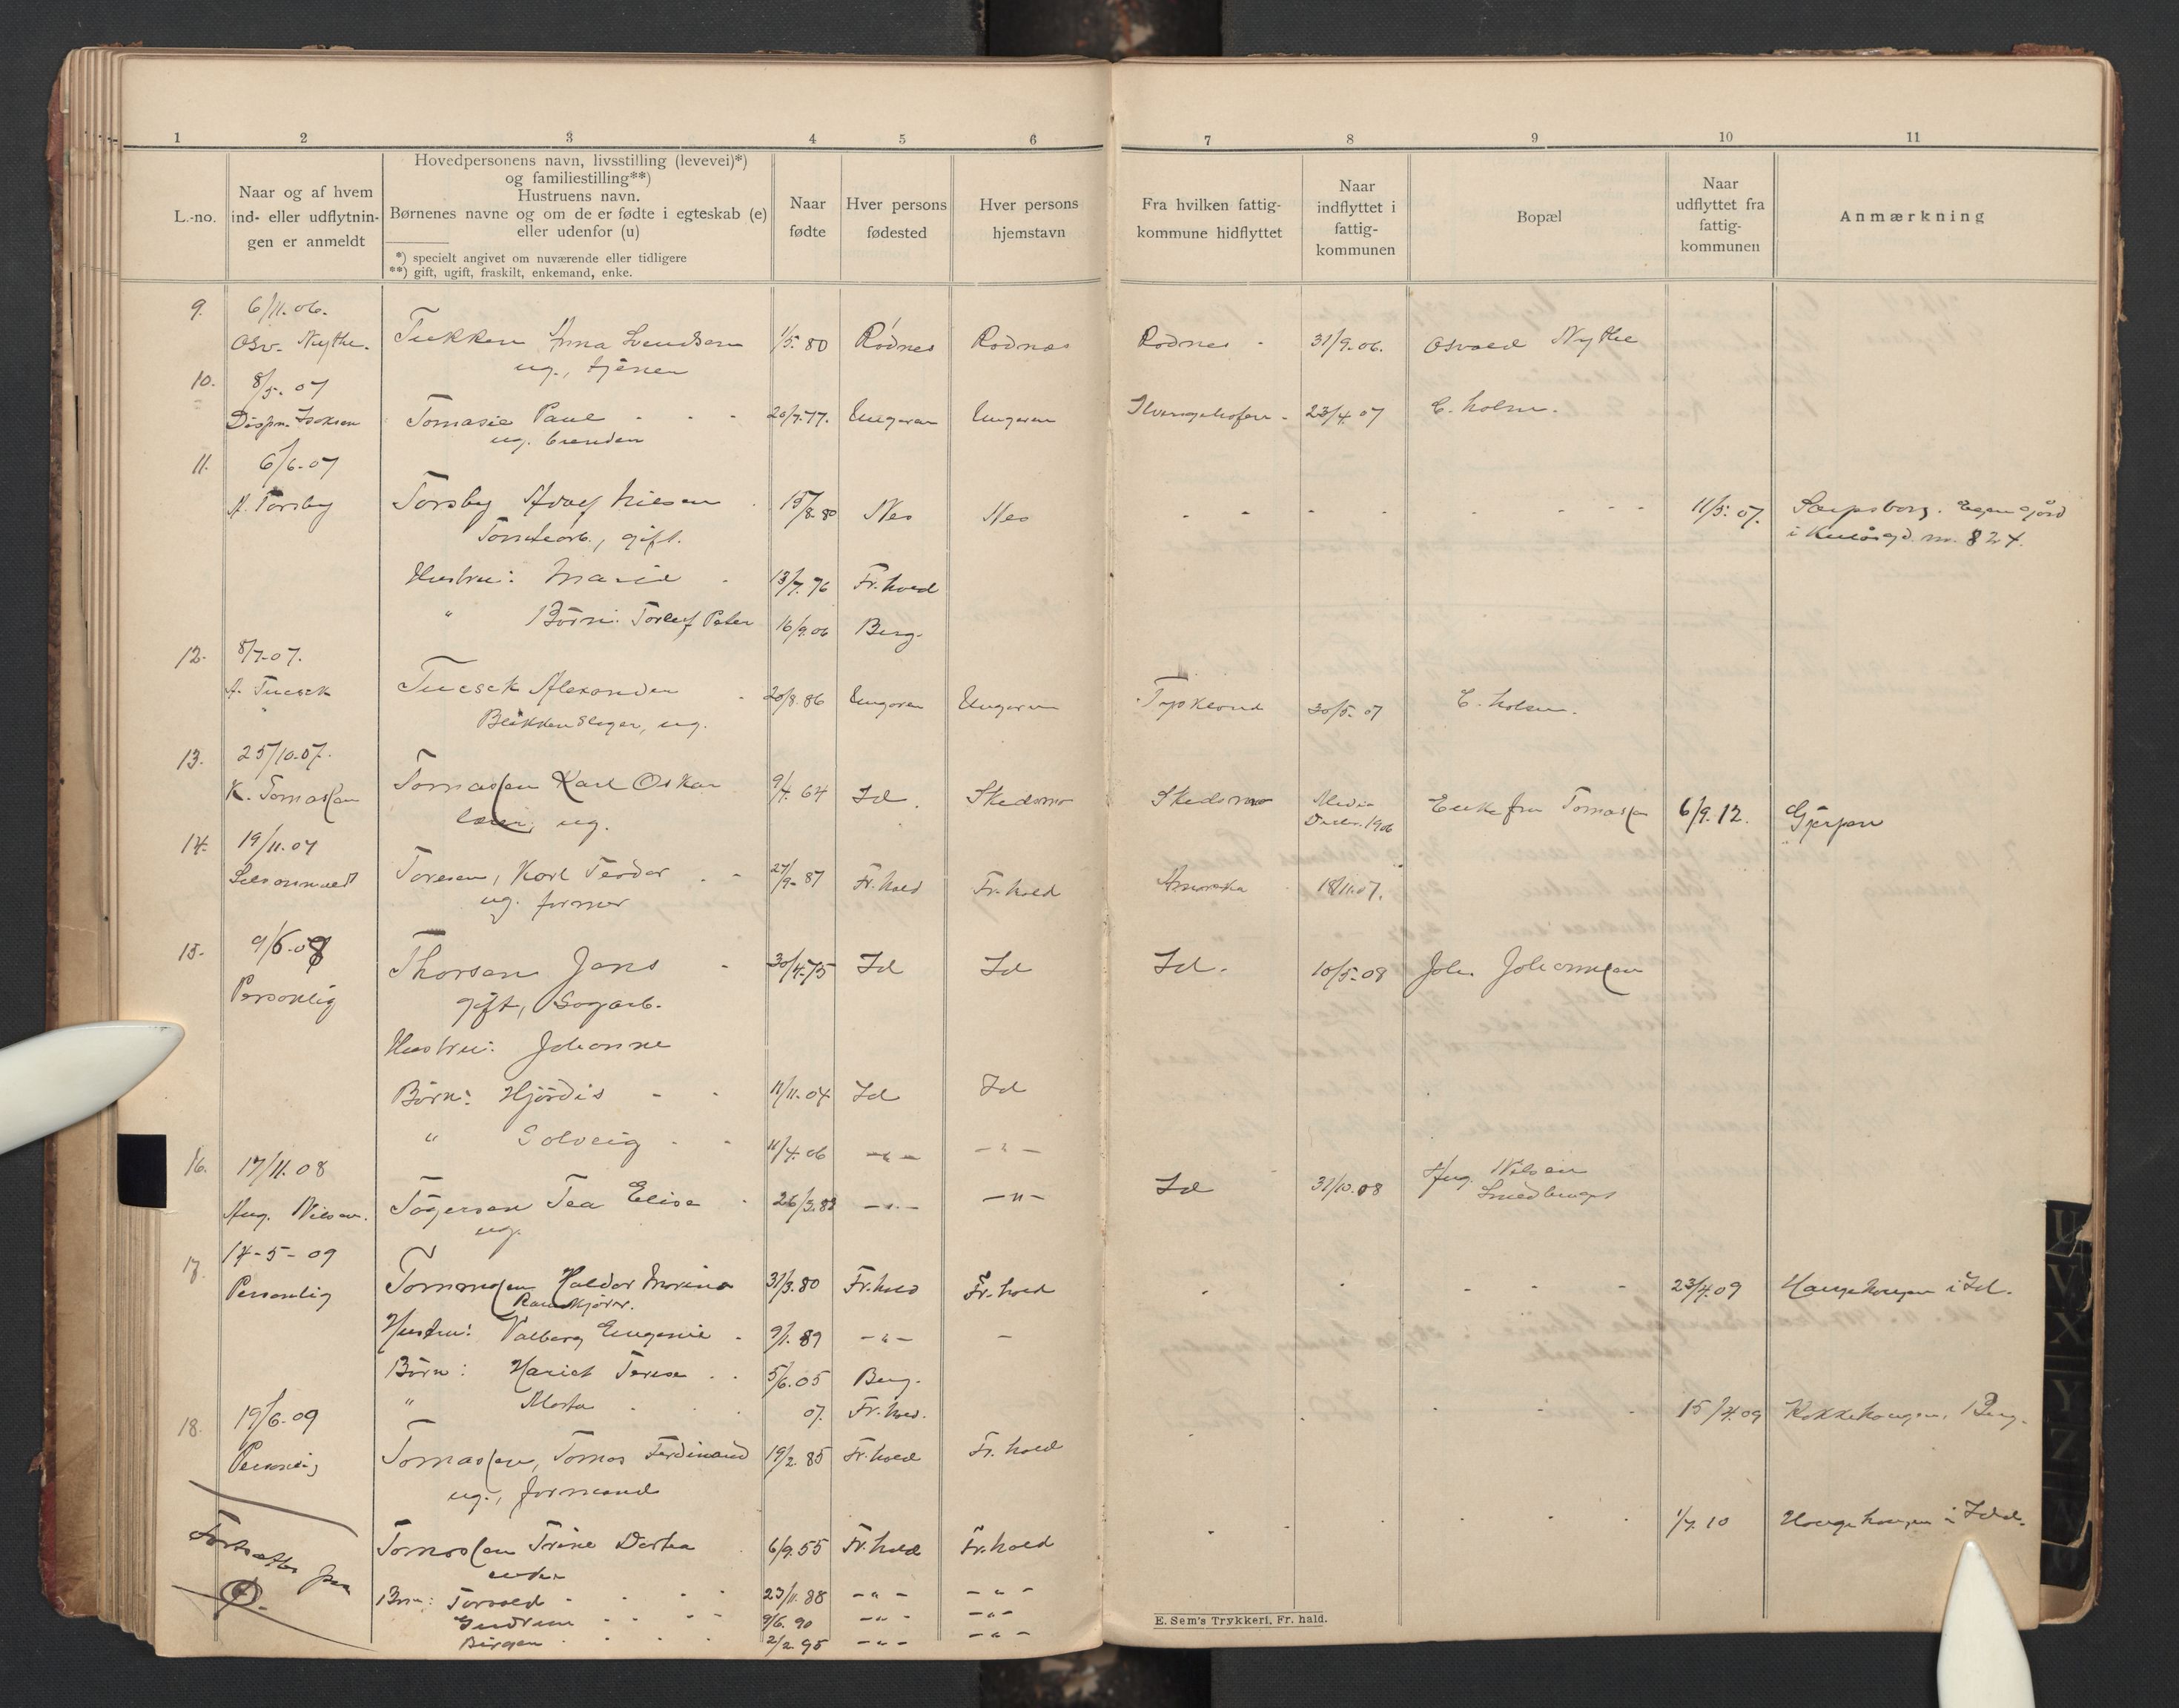 1 2 3 4 5 6 7 8 9 10 11
L.-no.
Naar og af hvem
ind- eller udflytnin-
gen er anmeldt
Hovedpersonens navn, livsstilling (levevei)*)
og familiestilling**)
Hustruens navn.
Børnenes navne og om de er fødte i egteskab (e)
eller udenfor (u)
*) specielt angivet om nuværende eller tidligere
**) gift, ugift, fraskilt, enkemand, enke.
Naar
fødte
Hver persons
fødested
Hver persons
hjemstavn
Fra hvilken fattig-
kommune hidflyttet
Naar
indflyttet i
fattig-
kommunen
Bopæl
Naar
udflyttet fra
fattig-
kommunen
Anmærkning
9. 6/11.06.
Osv. Nythe. Anna 1/5.80 Rødnes Rødnæs Rødnes 31/9.06. Osvald Nythe
ug., tjener
10. 8/5.07
Tomasie Paul 20/7.77. Ungarn Ungarn 23/4.07 C. holm.
ug.
11. 6/6.07
A. Torsby Torsby Adolf Nilsen 15/8.80 Nes Nes 11/5.07. Sarpsborg.
Tomtearb., gift. 824.
Hustru: Marie 13/7.76 Fr.hald
" Børn: Torleif Peter 16/9.06 Berg.
12. 8/7.07.
A. Tucsek Tucsek Alexander 20/8.86 Ungarn Ungarn Tyskland 30/5.07 C. holm.
Blikkenslager, ug.
13. 25/10.07.
K. Tomassen Tomassen Karl Oskar 9/4.64 Id. Skedsmo Skedsmo Medio Decbr. 1906 Enkefru Tomassen 6/9.12. Gjerpen
ug.
14. 19/11.07
Toresen, Karl Teodor 27/9.87 Fr.hald Fr.hald Amerika 18/11.07.
ug. former
15. 9/6.08
Personlig Thorsen Jens 30/4.75 Id Id Id. 10/5.08 Joh. Johannsen
gift, Sagarb.
Hustru: Johanne
Børn: Hjørdis 11/11.04 Id Id
" Solveig 11/4.06 - " - - " -
16. 17/11.08
Aug. Nilsen. Tøgersen Tea Elise 26/3.82 - " - - " - Id 31/10.08 Aug. Nilsen
ug.
17. 14-5-09
Personlig Haldor Marino 31/3.80 Fr.hald Fr.hald 23/4.09 Haugekongen i Id.
Hustru: Valborg Eugenie 9/1.89 - " - -
Børn: Hariet Terese 5/6.05 Berg.
" Marta 07. Fr.hald.
18. 19/6.09 15/4.09 Berg.
Personlig Tomassen, Tomas Ferdinand 19/2.85 Fr.hald Fr.hald
ug., formand
1/7.10 i Idd.
Fortsættes paa
Tomassen Trine Dortea 6/9.55 Fr.hald Fr.hald
enke
Børn: Torvald 23/11.88 - " - - " -
Gudrun 9/6.90 - " - - " -
Birger 2/2.95 - " - - " -
E. Sem's Trykkeri, Fr. hald.
U
V
X
Y
Z